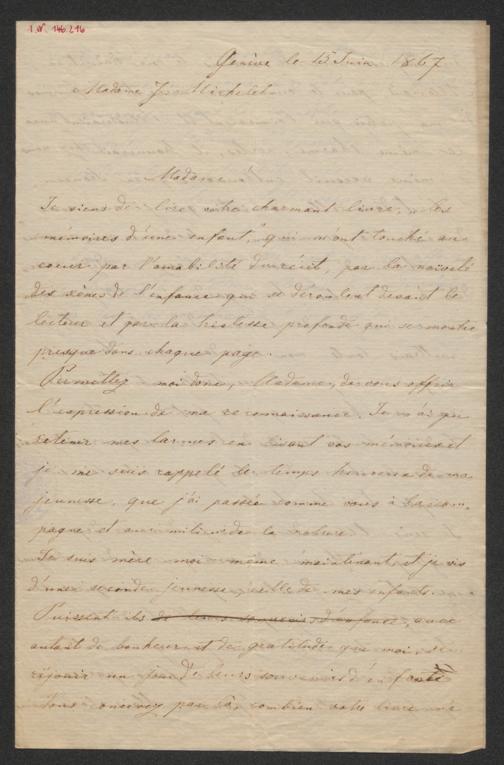 I.N. 146.216
Genève le 15 Juin 1867
Madame J. Michelet
Madame
Je viens de lire votre charmant livre, „les
mémoires d'une enfant," qui m'ont touché au
coeur par l'amabilité du récit, par la naïveté
des scènes de l'enfance qui se déroulent devant le
lecteur et par la tristesse profonde qui se montre
presque dans chaque page.
Permettez moi donc, Madame, de vous offrir
l'expression de ma reconnaissance. Je n'ai pu
retenir mes larmes en lisant vos mémoires et
je me suis rappelé le temps heureux de ma
jeunesse, que j'ai passée comme vous à la cam-
pagne et au milieu de la nature.
Je suis mère moi même maintenant et je vis
d'une seconde jeunesse, celle de mes enfants.
Puissent ils de leurs souvenirs d'enfance, avec
autant de bonheur et de gratitude que moi, se
réjouir un jour de leurs souvenirs d'enfance
Vous concevez par là combien votre livre m'a